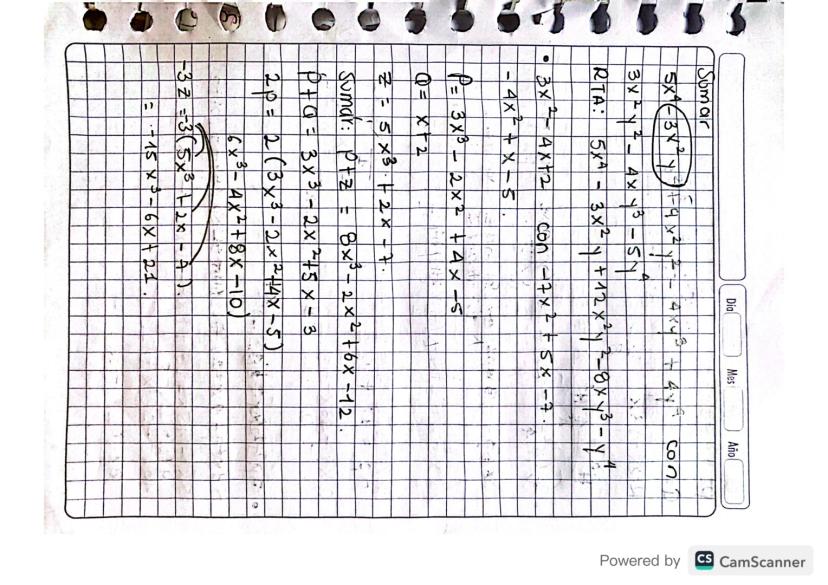 Día Mes Año
Sumar
5x⁴ - 3x²y + 4x²y² - 4xy³ + 4y⁴ con
3x²y² - 4xy³ - 5y⁴
RTA: 5x⁴ - 3x²y + 12x²y² - 8xy³ - y⁴
• 3x² - 4x + 2 con -7x² + 5x - 7.
- 4x² + x - 5.
P = 3x³ - 2x² + 4x - 5
Q = x + 2
z = 5x³ + 2x - 7.
Sumar: p + z = 8x³ - 2x² + 6x - 12.
P + Q = 3x³ - 2x² + 5x - 3
2p = 2(3x³ - 2x² + 4x - 5)
6x³ - 4x² + 8x - 10)
-3z = -3(5x³ + 2x - 7).
= -15x³ - 6x + 21.
Powered by CS CamScanner